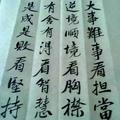 大事難事看担當
逆境順境看胸襟
有舍有得看智慧
是成是敗看堅持